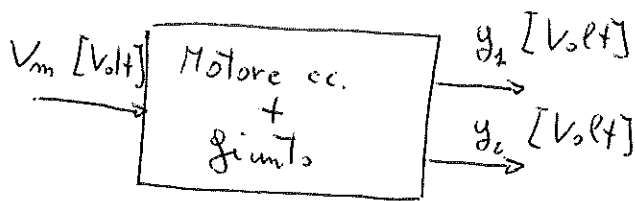 Vm [Volt]
Motore cc.
+
giunto
y1 [Volt]
y2 [Volt]